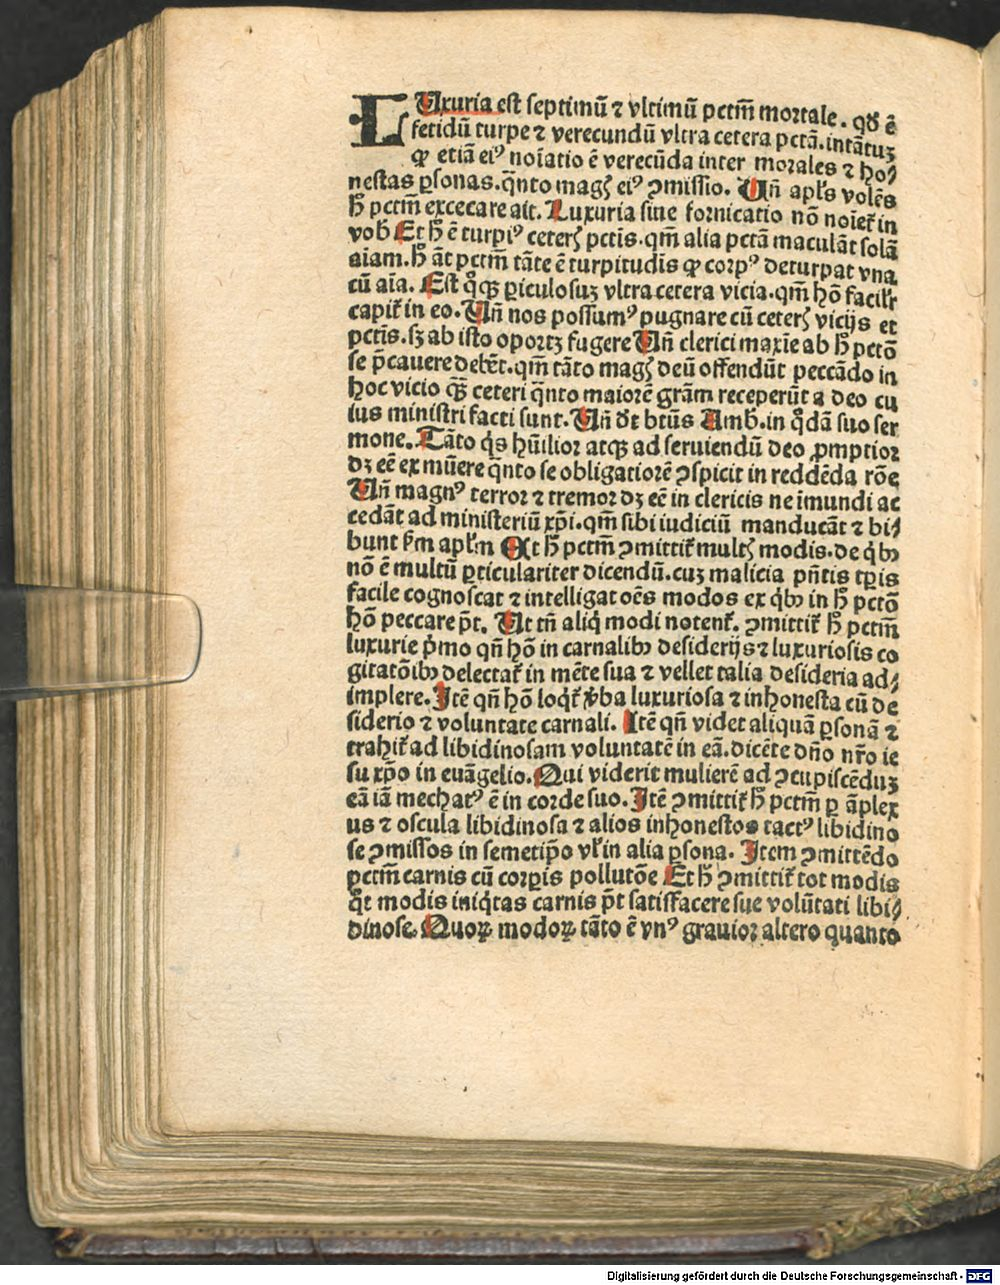 LUxuria est septimū ⁊ vltimū pctm̄ mortale. qd̓ ē
fetidū turpe ⁊ verecundū vltra cetera pctā. intātuꝫ
ꝙ etiā eiꝰ noīatio ē verecūda inter morales ⁊ ho⸗
nestas ꝑsonas. q̄nto magꝭ eiꝰ ꝯmissio. Un̄ apl̓s volēs
h̓ pctm̄ excecare ait. Luxuria siue fornicatio nō noiet̓ in
vob̓ Et h̓ ē turpiꝰ ceterꝭ pctis. qm̄ alia pctā maculāt solā
aīam. h̓ āt pctm̄ tāte ē turpitudīs ꝙ corpꝰ deturpat vna
cū aīa. Est qͦꝗꝫ ꝑiculosuꝫ vltra cetera vicia. qm̄ hō facilꝉr
capit̓ in eo. Un̄ nos possumꝰ pugnare cū ceterꝭ vicijs et
pctīs. sꝫ ab isto oportꝫ fugere Un̄ clerici maxīe ab h̓ pctō
se p̄cauere debēt. qm̄ tāto magꝭ deū offendūt peccādo in
hoc vicio qȝ̄ ceteri q̄nto maiorē gr̄am receperūt a deo cu
ius ministri facti sunt. Un̄ dt̓ btūs Amb. in qͣdā suo ser
mone. Tāto qͥs hūilior atqꝫ ad seruiendū deo ꝓmptior
dꝫ eē ex mūere q̄nto se obligatiorē ꝯspicit in reddēda rōe
Un̄ magnꝰ terror ⁊ tremor dꝫ eē in clericis ne īmundi ac
cedāt ad ministeriū xp̄i. qm̄ sibi iudiciū manducāt ⁊ bi⸗
bunt ẜm apl̓m Et h̓ pctm̄ ꝯmittit̓ multꝭ modis. de qͥbꝫ
nō ē multū ꝑticulariter dicendū. cuꝫ malicia pn̄tis tꝑis
facile cognoscat ⁊ intelligat oēs modos ex qͥbꝫ in h̓ pctō
hō peccare pt̄. Ut tn̄ aliqͥ modi notent̓. ꝯmittit̓ h̓ pctm̄
luxurie pͥmo qn̄ hō in carnalibꝫ desiderijs ⁊ luxuriosis co
gitatōibꝫ delectat̓ in mēte sua ⁊ vellet talia desideria ad⸗
implere. Itē qn̄ hō loqͥt̓ v̓ba luxuriosa ⁊ inhonesta cū de
siderio ⁊ voluntate carnali. Itē qn̄ videt aliquā ꝑsonā ⁊
trahit̓ ad libidinosam voluntatē in eā. dicēte dn̄o nr̄o ie
su xp̄o in euāgelio. Qui viderit mulierē ad ꝯcupiscēduꝫ
eā iā mechatꝰ ē in corde suo. Itē ꝯmittit̓ h̓ pctm̄ ꝑ āplex
us ⁊ oscula libidinosa ⁊ alios inhonestos tactꝰ libidino
se ꝯmissos in semetip̄o vl̓ in alia ꝑsona. Item ꝯmittēdo
pctm̄ carnis cū corꝑis pollutōe Et h̓ ꝯmittit̓ tot modis
qͦt modis iniqͥtas carnis pt̄ satisfacere sue volūtati libi⸗
dinose. Quoꝝ modoꝝ tāto ē vnꝰ grauior altero quanto
Digitalisierung gefördert durch die Deutsche Forschungsgemeinschaft - DFG